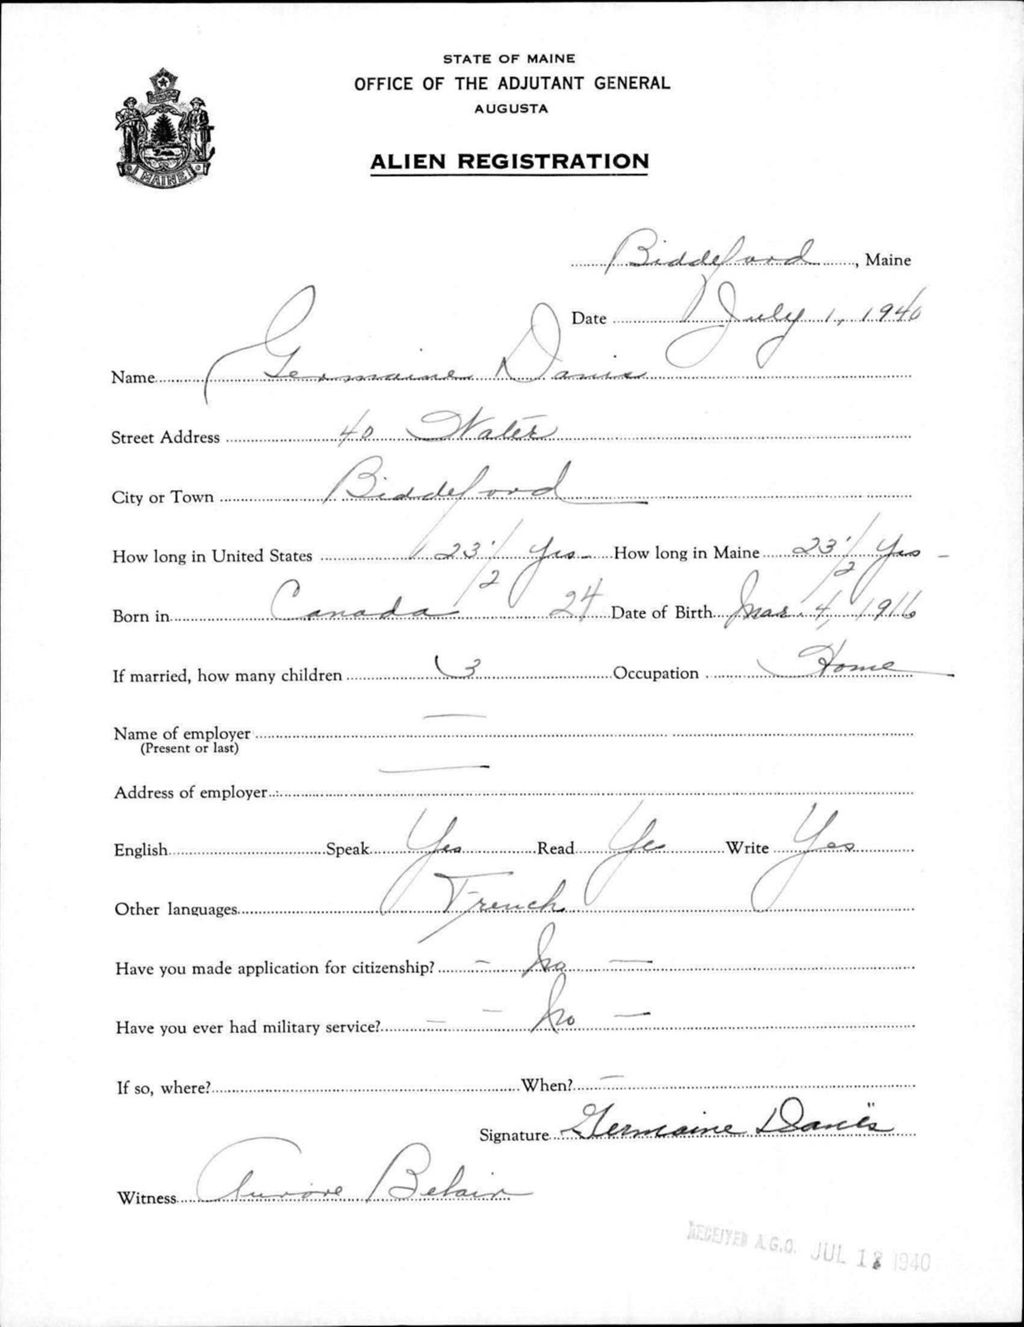 STATE OF MAINE
OFFICE OF THE ADJUTANT GENERAL
AUGUSTA
MAINE
ALIEN REGISTRATION
Biddeford, Maine
Date July 1, 1940
Name Germaine Danis
Street Address 40 Water
City or Town Biddeford
How long in United States 23 1/2 Yrs — How long in Maine 23 1/2 Yrs —
Born in Canada 24 Date of Birth Mar. 4, 1916
If married, how many children 3 Occupation Home
Name of employer —
(Present or last)
Address of employer —
English Speak Yes Read Yes Write Yes
Other languages French
Have you made application for citizenship? — No —
Have you ever had military service? — — No —
If so, where? When? —
Signature Germaine Danis
Witness Aurore Belair
RECEIVED A.G.O. JUL 1940